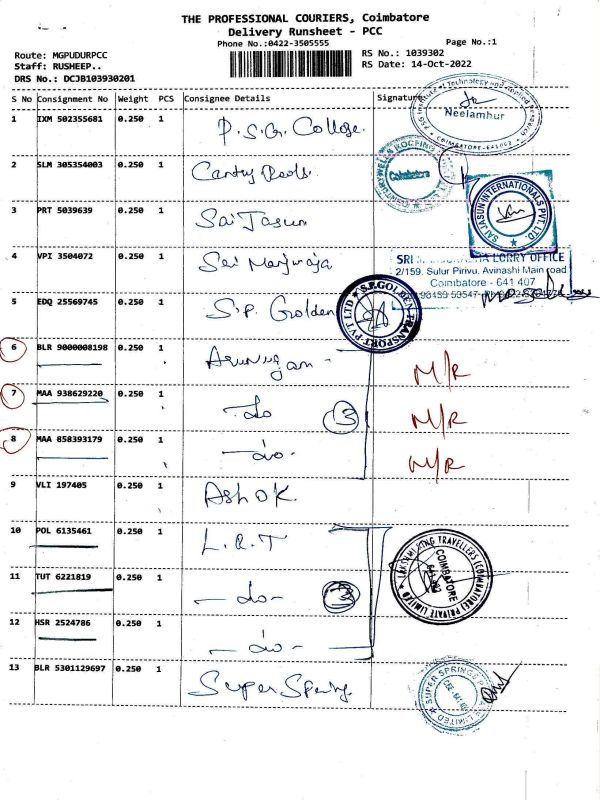 THE PROFESSIONAL COURIERS, Coimbatore
Delivery Runsheet - PCC
Phone No.:0422-3505555
Page No.:1
Route: MGPUDURPCC
RS No.: 1039302
Staff: RUSHEEP..
RS Date: 14-Oct-2022
DRS No.: DCJB103930201
S No Consignment No Weight PCS Consignee Details Signature
1 IXM 502355681 0.250 1 P.S.G. College.
Neelamhur
COIMBATORE-641062
2 SLM 305354003 0.250 1
Coimbatore
3 PRT 5039639 0.250 1 Sai Jasun
SAI JASUN INTERNATIONALS PVT LTD.
4 VPI 3504072 0.250 1 Sai
LORRY OFFICE
2/159, Sulur Pirivu, Avinashi Main road
Coimbatore - 641 407
5 EDQ 25569745 0.250 1 S.P. Golden
S.P.GOLDEN TRANSPORT PVT LTD
6 BLR 9000008198 0.250 1 N/R
7 MAA 938629220 0.250 1 -do- 3 N/R
8 MAA 858393179 0.250 1 -do- N/R
9 VLI 197405 0.250 1 Ashok.
10 POL 6135461 0.250 1 L.R.T
LAKSHMI RING TRAVELLERS (COIMBATORE) PRIVATE LIMITED
COIMBATORE
11 TUT 6221819 0.250 1 -do- 3
12 HSR 2524786 0.250 1 -do-
13 BLR 5301129697 0.250 1 Super Spring.
SUPER SPRINGS PRIVATE LIMITED